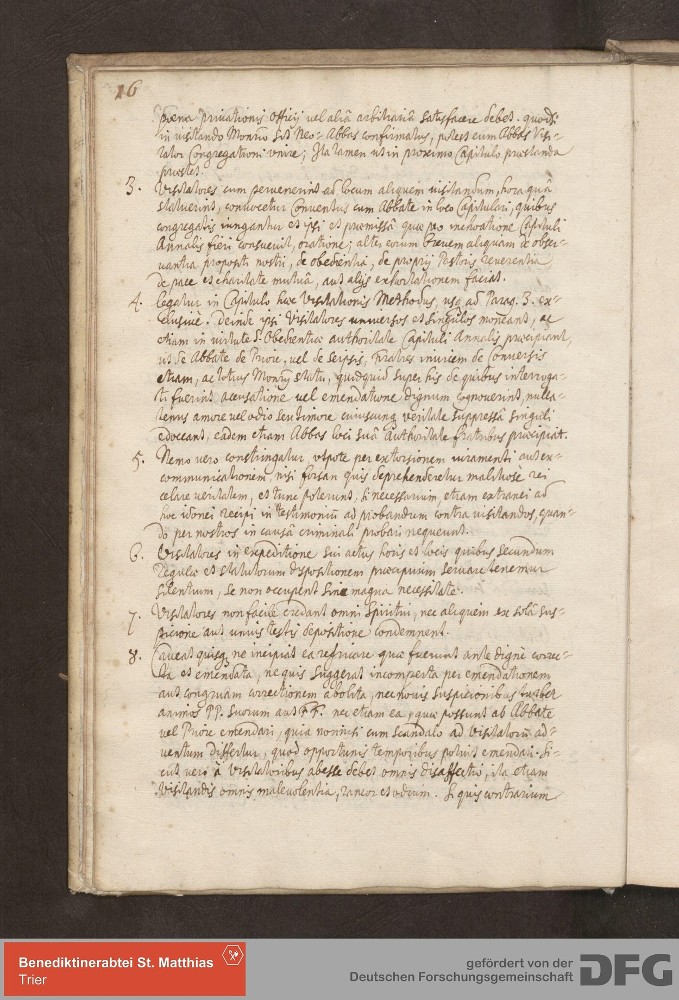 16
poena privationis officij vel aliâ arbitrariâ satisfacere debet. quodsi
in visitando Monrio sit Neo-Abbas confirmatus, potest eum Abbas Visi-
tator Congregationi vnire; Ita tamen ut in proximo Capitulo praestanda
praestet.
3. Visitatores cum pervenerint ad locum aliquem visitandum, hora quâ
statuerint, convocetur Conventus cum Abbate in loco Capitulari, quibus
congregatis iungantur et ipsi et praemissâ quae pro inchoatione Capituli
Annalis fieri consuevit, oratione; alter eorum brevem aliquam de obser-
vantia propositi nostri, de obedientia, de proprij Pastoris reverentia
de pace et charitate mutuâ, aut alijs exhortationem faciat.
4. legatur in Capitulo haec Visitationis Methodus, usq ad Parag. 3. ex-
clusivè. Deinde ipsi Visitatores universos et singulos moneant, ac
etiam in virtute S. Obedientiae authoritate Capituli Annalis praecipiant,
ut de Abbate de Priore, vel de seipsis, Fratres invicem de Conversis
etiam, ac totius Monrij statu, quidquid super his de quibus interroga-
ti fuerint, accusatione vel emendatione dignum cognoverint, nulla-
tenus amore vel odio seu timore cuiuscunq veritate suppressâ singuli
edoceant, eadem etiam Abbas loci suâ Authoritate fratribus praecipiat.
5. Nemo vero constringatur, utpote per extorsionem iuramenti aut ex-
communicationem, nisi forsan quis deprehenderetur malitiosè rei
celare veritatem, et tunc poterunt, si necessarium, etiam extranei ad
hoc idonei recipi in testimoniu ad probandum contra visitandos, quan-
dò per nostros in causâ criminali probari nequeunt.
6. Visitatores in expeditione sui actus horis et locis quibus secundum
regulae et statutorum dispositionem praecipuum servare tenemur
silentium, se non occupent sine magna necessitate.
7. Visitatores non facilè credant omni Spiritui, nec aliquem ex solâ sus-
picione aut unius testis depositione condemnent.
8. Caveat quisq ne incipiat ea refricare quae fuerunt ante dignè correc-
ta et emendata, ne quis suggerat incomperta per emendationem
aut congruam correctionem abolita, nec novis suspicionibus turbet
animos PP. suorum aut FF. nec etiam ea, quae possunt ab Abbate
vel Priore emendari, quia nonnisi cum scandalo ad Visitatoru ad-
ventum differtur, quod opportunis temporibus potuit emendari. Si-
cut verò à Visitatoribus abesse debet omnis disaffectio, ita etiam
visitandis omnis malevolentia, rancor et odium. Si quis contrarium
Benediktinerabtei St. Matthias
Trier
gefördert von der
Deutschen Forschungsgemeinschaft
DFG